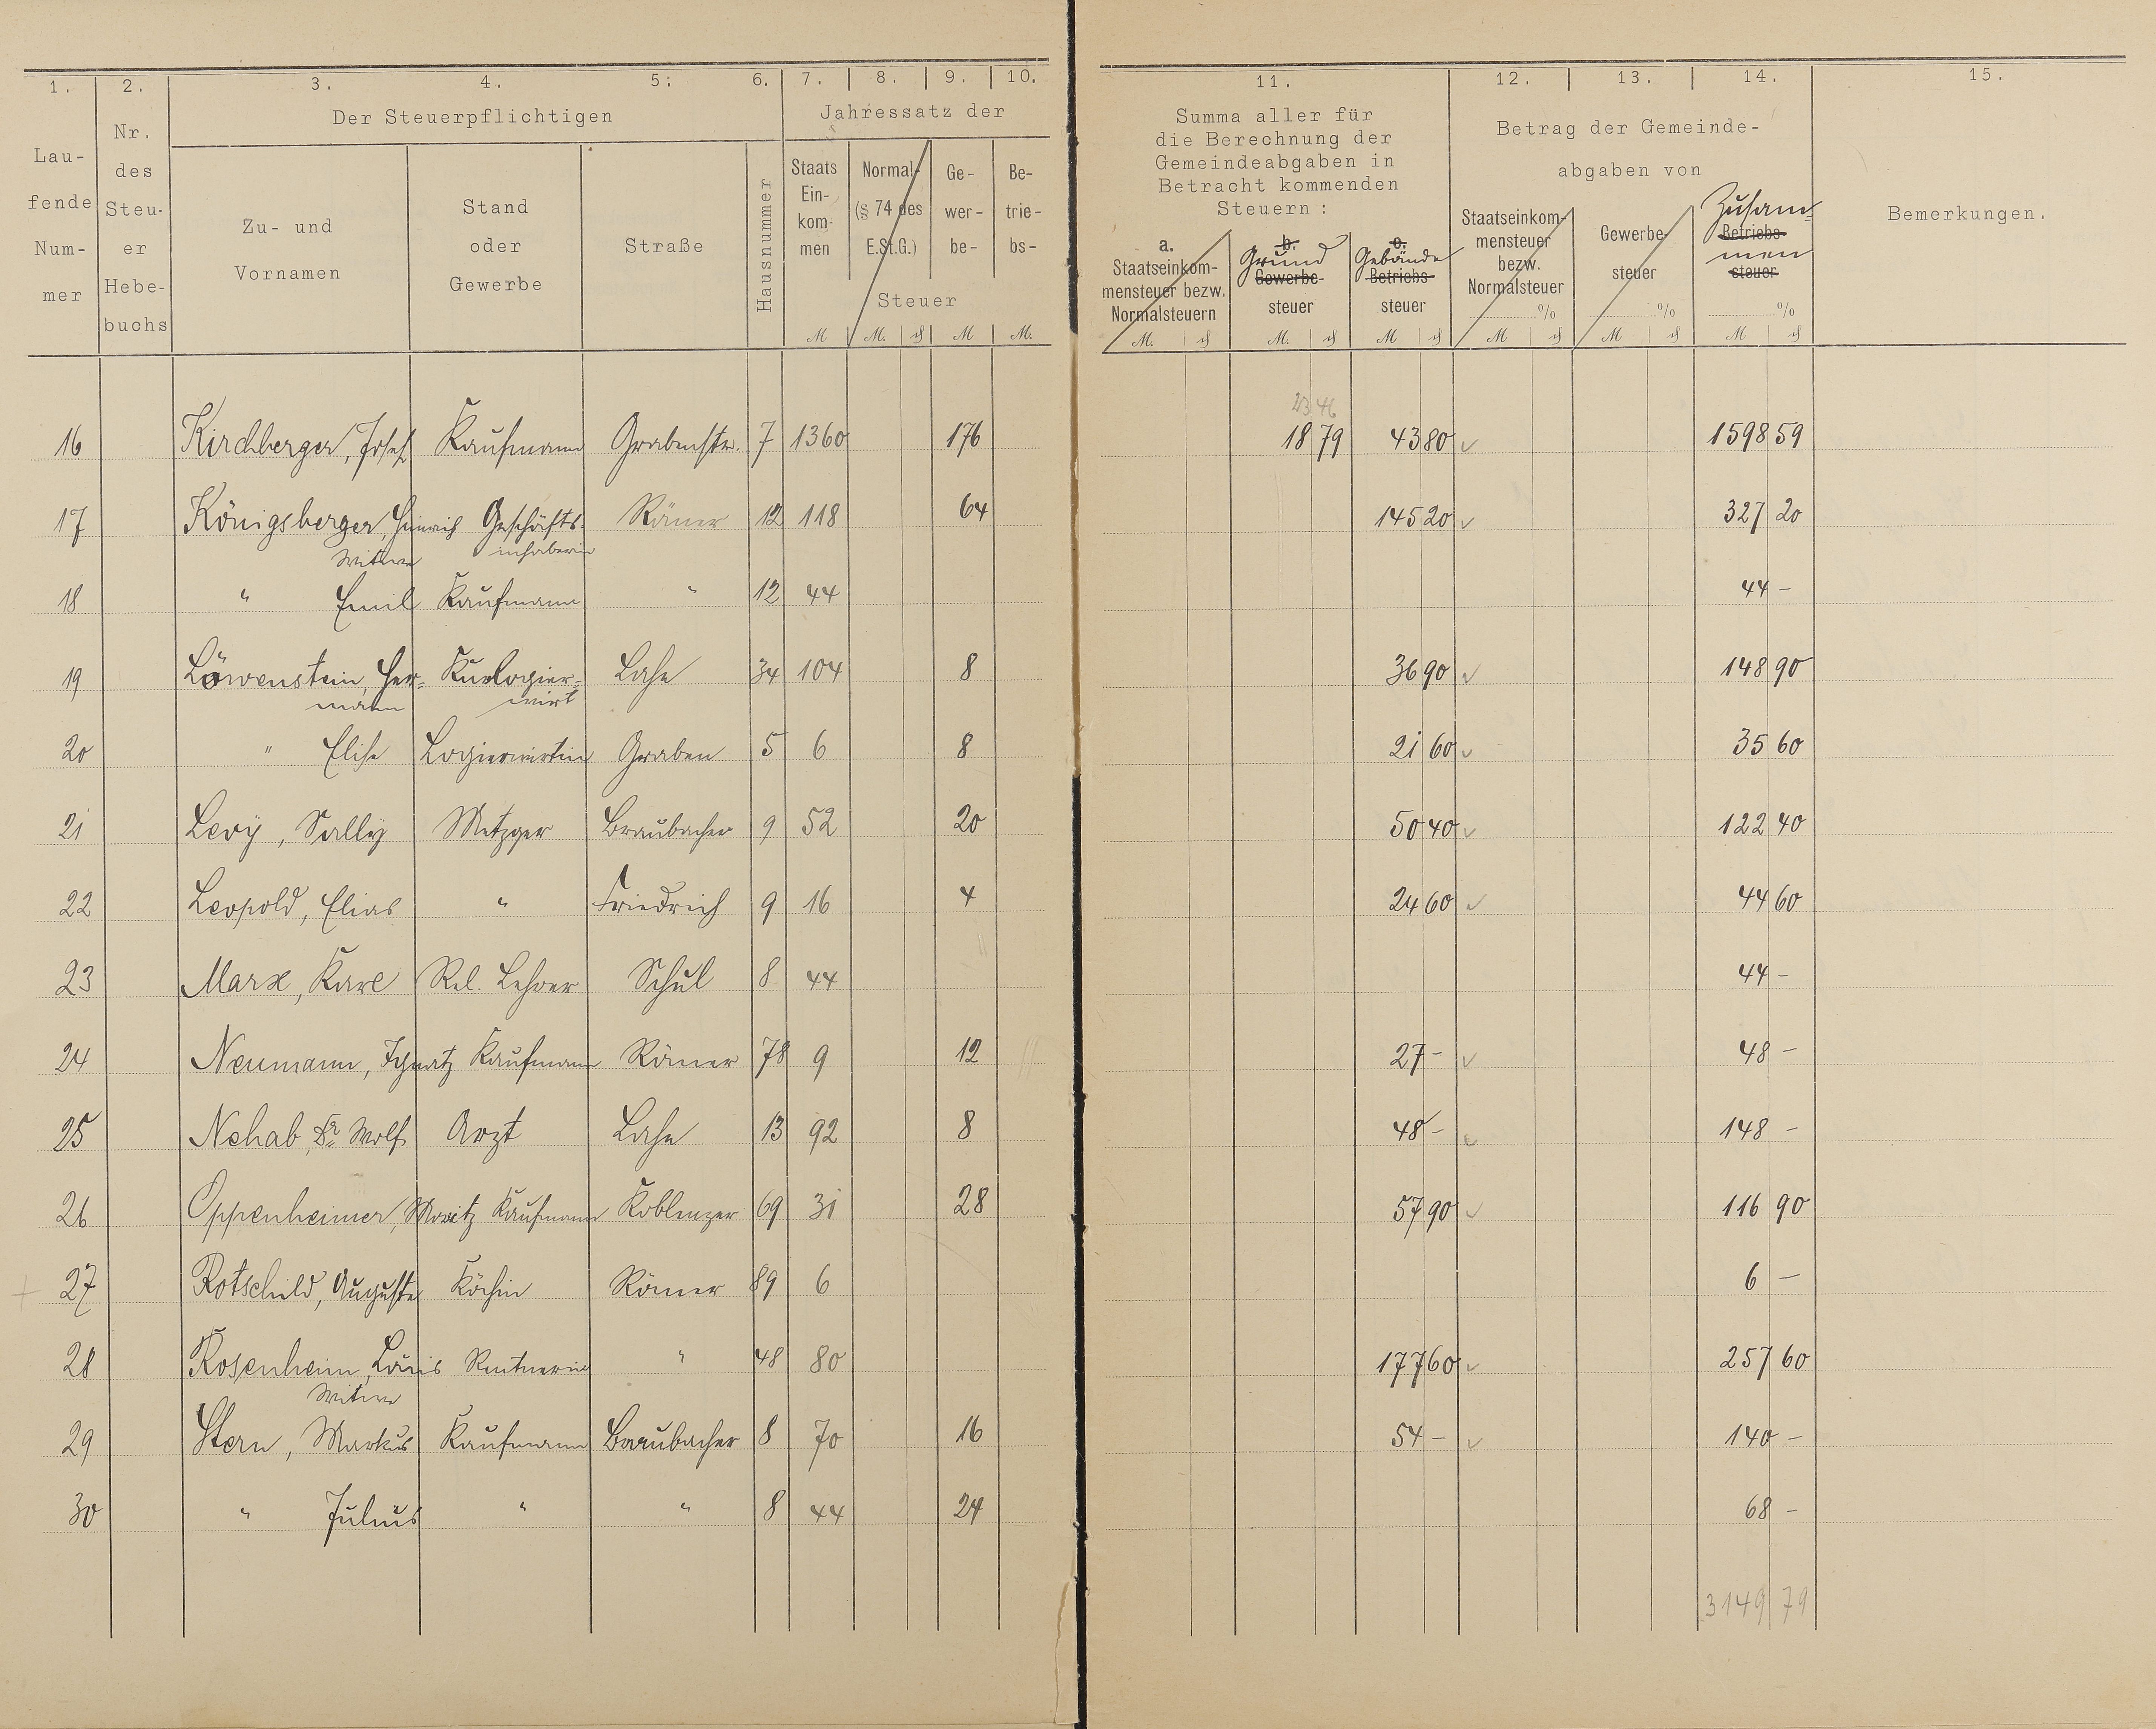 1. 2. 3. 4. 5. 6. 7. 8. 9. 10. 11. 12. 13. 14. 15.
Laufende Nummer
Nr. des Steuer Hebebuchs
Der Steuerpflichtigen
Zu- und Vornamen
Stand oder Gewerbe
Straße
Hausnummer
Jahressatz der
Staats Einkommen
Normal- (§ 74 des E.St.G.)
Gewerbe-
Betriebs-
Steuer
M M. ₰ M M.
Summa aller für
die Berechnung der
Gemeindeabgaben in
Betracht kommenden
Steuern :
a. Staatseinkommensteuer bezw. Normalsteuern
b. Grund Gewerbe- steuer
c. Gebäude Betriebs- steuer
Betrag der Gemeinde-
abgaben von
Staatseinkommensteuer bezw. Normalsteuer %
Gewerbe steuer %
Zusammen Betriebs- steuer %
Bemerkungen.
M. ₰ M. ₰ M ₰ M ₰ M ₰ M ₰
23 46
16 Kirchberger, Josef Kaufmann Grabenstr. 7 1360 176 18 79 43 80 1598 59
17 Königsberger, Heinrich Geschäfts- Römer 12 118 64 145 20 327 20
Witwe inhaberin
18 " Emil Kaufmann " 12 44 44 -
19 Löwenstein, Her- Kurlogier- Lahn 34 104 8 36 90 148 90
mann wirt
20 " Elise Logierwirtin Graben 5 6 8 21 60 35 60
21 Levÿ, Sallÿ Metzger Braubacher 9 52 20 50 40 122 40
22 Leopold, Elias " Friedrich 9 16 4 24 60 44 60
23 Marx, Karl Rel. Lehrer Schul 8 44 44 -
24 Neumann, Ignatz Kaufmann Römer 78 9 12 27 - 48 -
25 Nehab, Dr. Wolf Arzt Lahn 13 92 8 48 - 148 -
26 Oppenheimer, Moritz Kaufmann Koblenzer 69 31 28 57 90 116 90
27 Rotschild, Auguste Köchin Römer 89 6 6 -
28 Rosenheim, Louis Rentnerin " 48 80 177 60 257 60
Witwe
29 Stern, Markus Kaufmann Braubacher 8 70 16 54 - 140 -
30 " Julius " " 8 44 24 68 -
3149 79